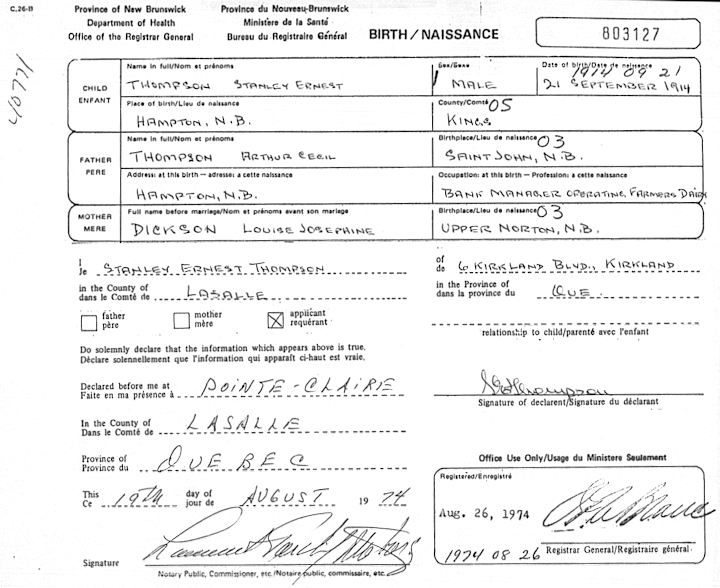 C.26-B
Province of New Brunswick
Department of Health
Office of the Registrar General
Province du Nouveau-Brunswick
Ministère de la Santé
Bureau du Registraire Général
BIRTH/NAISSANCE
803127
40771
CHILD
ENFANT
Name in full/Nom et prénoms
THOMPSON STANLEY ERNEST
Sex/Sexe
MALE
Date of birth/Date de naissance
1914 09 21
21 SEPTEMBER 1914
Place of birth/Lieu de naissance
HAMPTON, N.B.
County/Comté 05
KINGS
FATHER
PERE
Name in full/Nom et prénoms
THOMPSON ARTHUR CECIL
Birthplace/Lieu de naissance 03
SAINT JOHN, N.B.
Address: at this birth — adresse: a cette naissance
HAMPTON, N.B.
Occupation: at this birth — Profession: a cette naissance
BANK MANAGER OPERATING FARMERS DAIRY
MOTHER
MERE
Full name before marriage/Nom et prénoms avant son mariage
DICKSON LOUISE JOSEPHINE
Birthplace/Lieu de naissance 03
UPPER NORTON, N.B.
I
Je STANLEY ERNEST THOMPSON
of
de 6 KIRKLAND BLVD., KIRKLAND
in the County of
dans le Comté de LASALLE
in the Province of
dans la province du QUE.
father
père
mother
mère
applicant
requérant
relationship to child/parenté avec l'enfant
Do solemnly declare that the information which appears above is true.
Déclare solennellement que l'information qui apparaît ci-haut est vraie.
Declared before me at
Faite en ma présence à POINTE-CLAIRE
Thompson
Signature of declarent/Signature du déclarant
In the County of
Dans le Comté de LASALLE
Province of
Province du QUEBEC
This
Ce 19th day of
jour de AUGUST 19 74
Signature
Notary Public, Commissioner, etc./Notaire public, commissaire, etc.
Office Use Only/Usage du Ministere Seulement
Registered/Enregistré
Aug. 26, 1974
1974 08 26
Registrar General/Registraire général